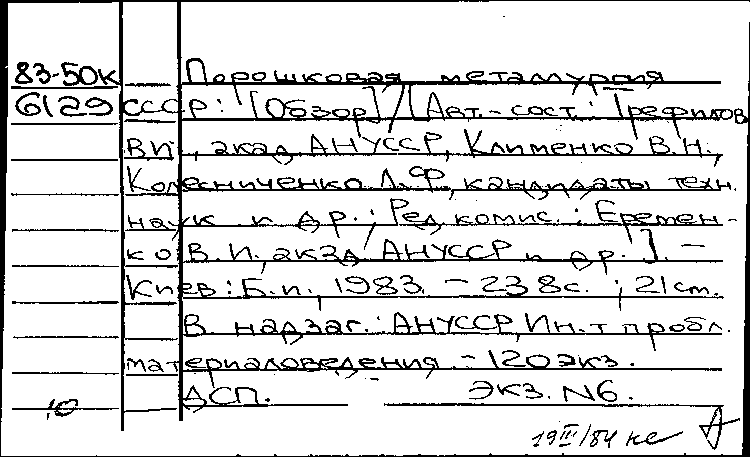 83-50к Порошковая металлургия
6129 СССР: [Обзор]/[Авт.-сост.: Трефилов
В.И., акад. АНУССР, Клименко В.Н.,
Колесниченко Л.Ф., кандидаты техн.
наук и др.; Ред. комис.: Еремен-
ко В.И., акад. АНУССР и др.]. -
Киев: Б.и., 1983. - 238с.; 21см.
В надзаг.: АНУССР, Ин-т пробл.
материаловедения. - 120экз.
10 ДСП. Экз. N6.
19III/84